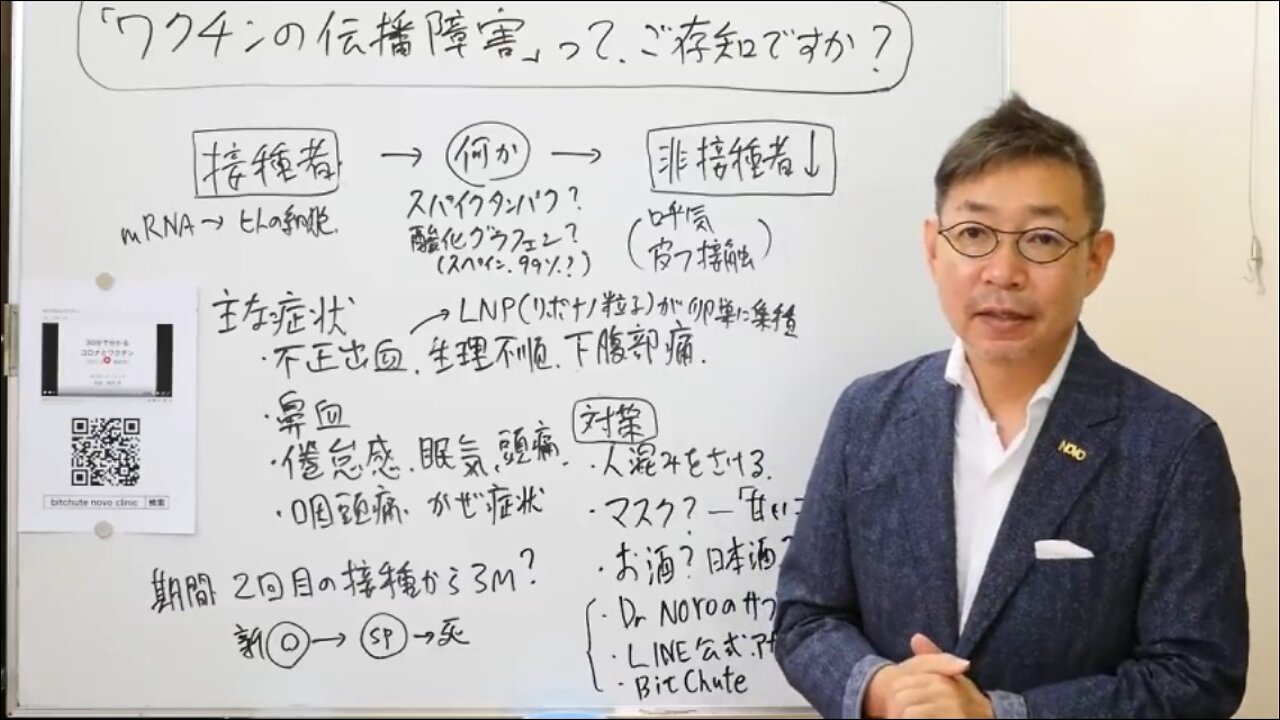 「ワクチンの伝播障害」って、ご存知ですか?
接種者 → 何か → 非接種者↓
mRNA→ヒトの細胞
スパイクタンパク?
酸化グラフェン?
(スペイン、99%?)
(呼気
皮フ接触)
主な症状
→LNP(リポナノ粒子)が卵巣に集積
・不正出血、生理不順、下腹部痛.
・鼻血
・倦怠感、眠気、頭痛.
・咽頭痛、かぜ症状
対策
・人混みをさける.
・マスク?―「甘い
・お酒?日本酒?
・Dr NOYOのサプ
・LINE公式
・BitChute
期間 2回目の接種から3M?
新 → SP → 死
30分で分かる
コロナとワクチン
bitchute novo clinic 検索
NOVO